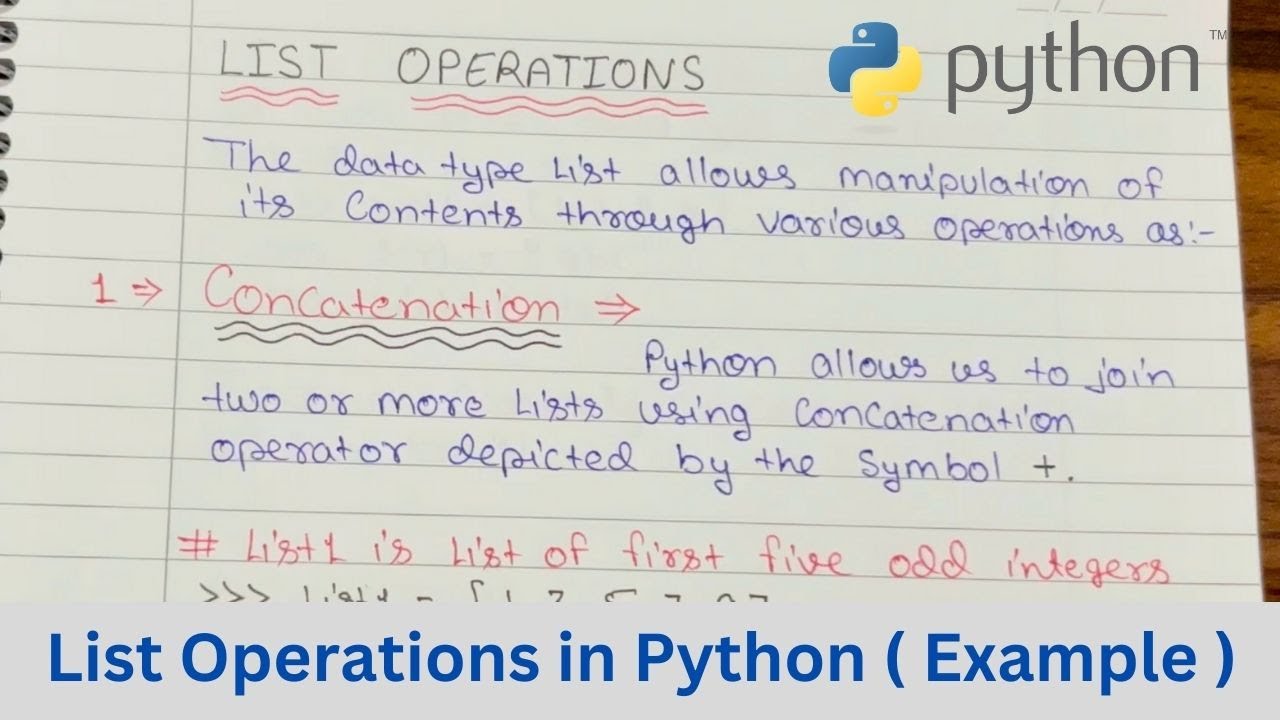 LIST OPERATIONS
python TM
The data type List allows manipulation of
its Contents through various operations as:-
1 ⇒ Concatenation ⇒
Python allows us to join
two or more Lists using Concatenation
operator depicted by the Symbol +.
# List1 is List of first five odd integers
>>> List1 = [1
List Operations in Python ( Example )